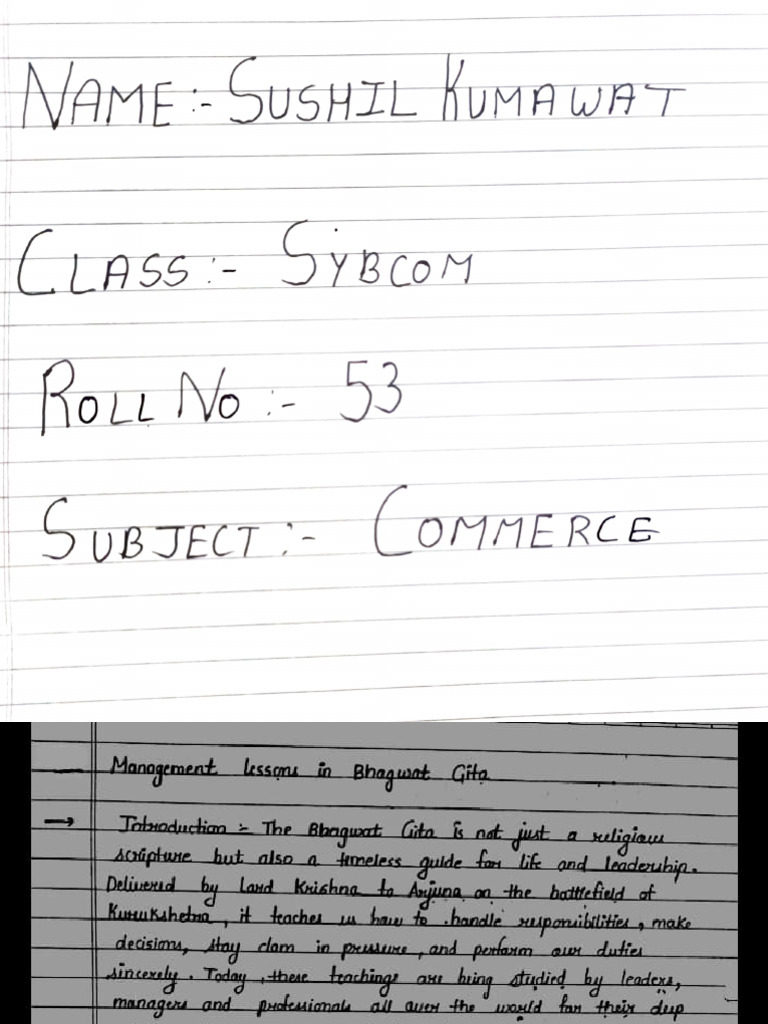 NAME:- SUSHIL KUMAWAT
CLASS:- SYBCOM
ROLL NO:- 53
SUBJECT:- COMMERCE
Management lessons in Bhagwat Gita
→ Introduction :- The Bhagwat Gita is not just a religious
scripture but also a timeless guide for life and leadership.
Delivered by Lord Krishna to Arjuna on the battlefield of
Kurukshetra, it teaches us how to handle responsibilities, make
decisions, stay clam in pressure, and perform our duties
sincerely. Today, these teachings are being studied by leaders,
managers and professionals all over the world for their deep